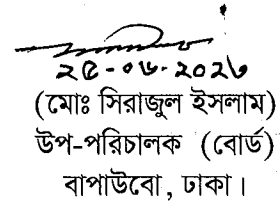 ২৫-০৬-২০২৩
(মোঃ সিরাজুল ইসলাম)
উপ-পরিচালক (বোর্ড)
বাপাউবো, ঢাকা।